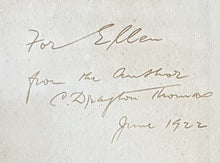 For Ellen
from the Author
C. Drayton Thomas
June 1922